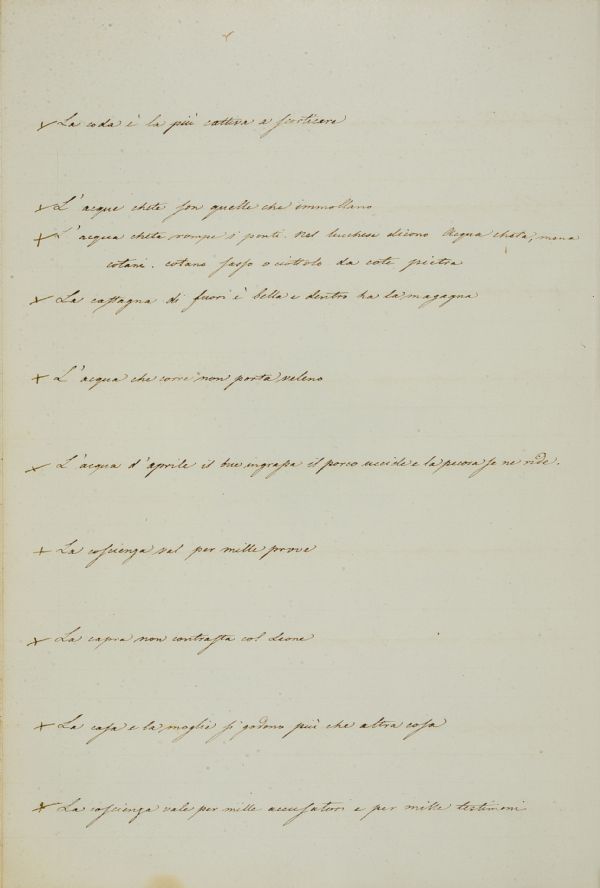 + La coda è la più cattiva a scorticare
+ L'acque chete son quelle che immollano
+ L'acqua cheta rompe i ponti. Nel lucchese dicono Acqua chata, mena
cotani. cotano sasso o ciottolo da cote pietra
+ La castagna di fuori è bella e dentro ha la magagna
+ L'acqua che corre non porta veleno
+ L'acqua d'aprile il bue ingrassa il porco uccide e la pecora se ne ride.
+ La coscienza val per mille prove
+ La capra non contrasta col Leone
+ La casa e la moglie si godono più che altra cosa
+ La coscienza vale per mille accusatori e per mille testimoni